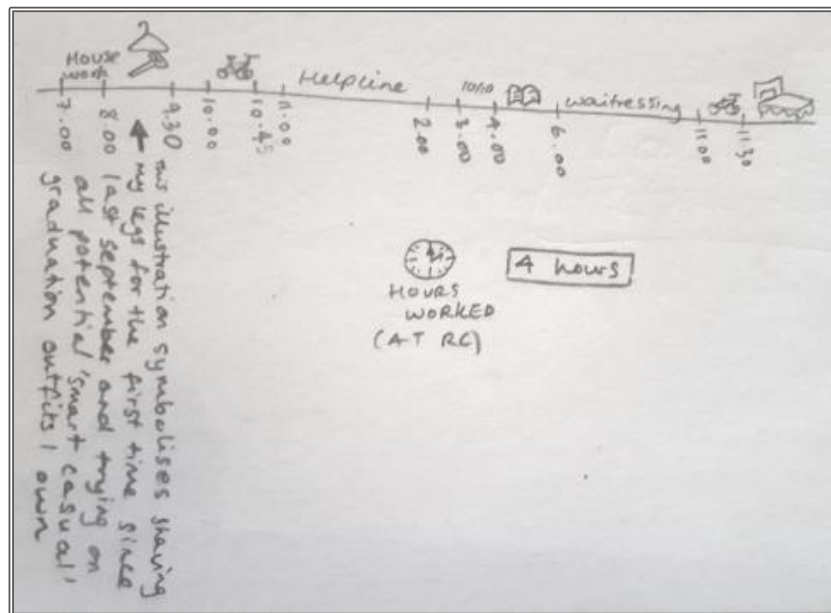 House
work
Helpline
10/10
waitressing
7.00
8.00
9.30
10.00
10.45
11.00
2.00
3.00
4.00
6.00
11.00
11.30
This illustration symbolises shaving
my legs for the first time since
last september and trying on
all potential 'smart casual'
graduation outfits I own
HOURS
WORKED
(AT RC)
4 hours